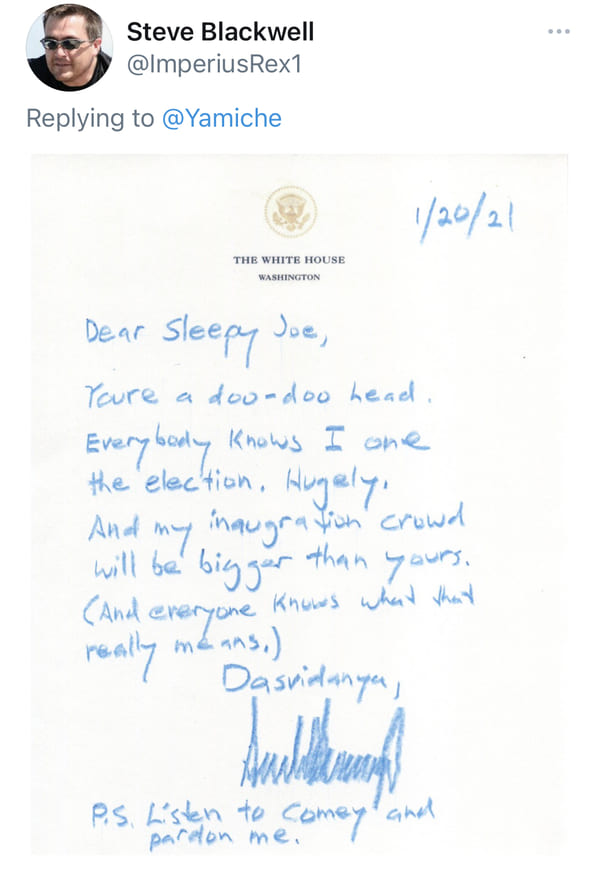 Steve Blackwell
@ImperiusRex1
Replying to @Yamiche
1/20/21
THE WHITE HOUSE
WASHINGTON
Dear Sleepy Joe,
Youre a doo-doo head.
Everybody knows I one
the election. Hugely.
And my inaugration crowd
will be bigger than yours.
(And everyone knows what that
really means.)
Dasvidanya,
P.S. Listen to Comey and
pardon me.